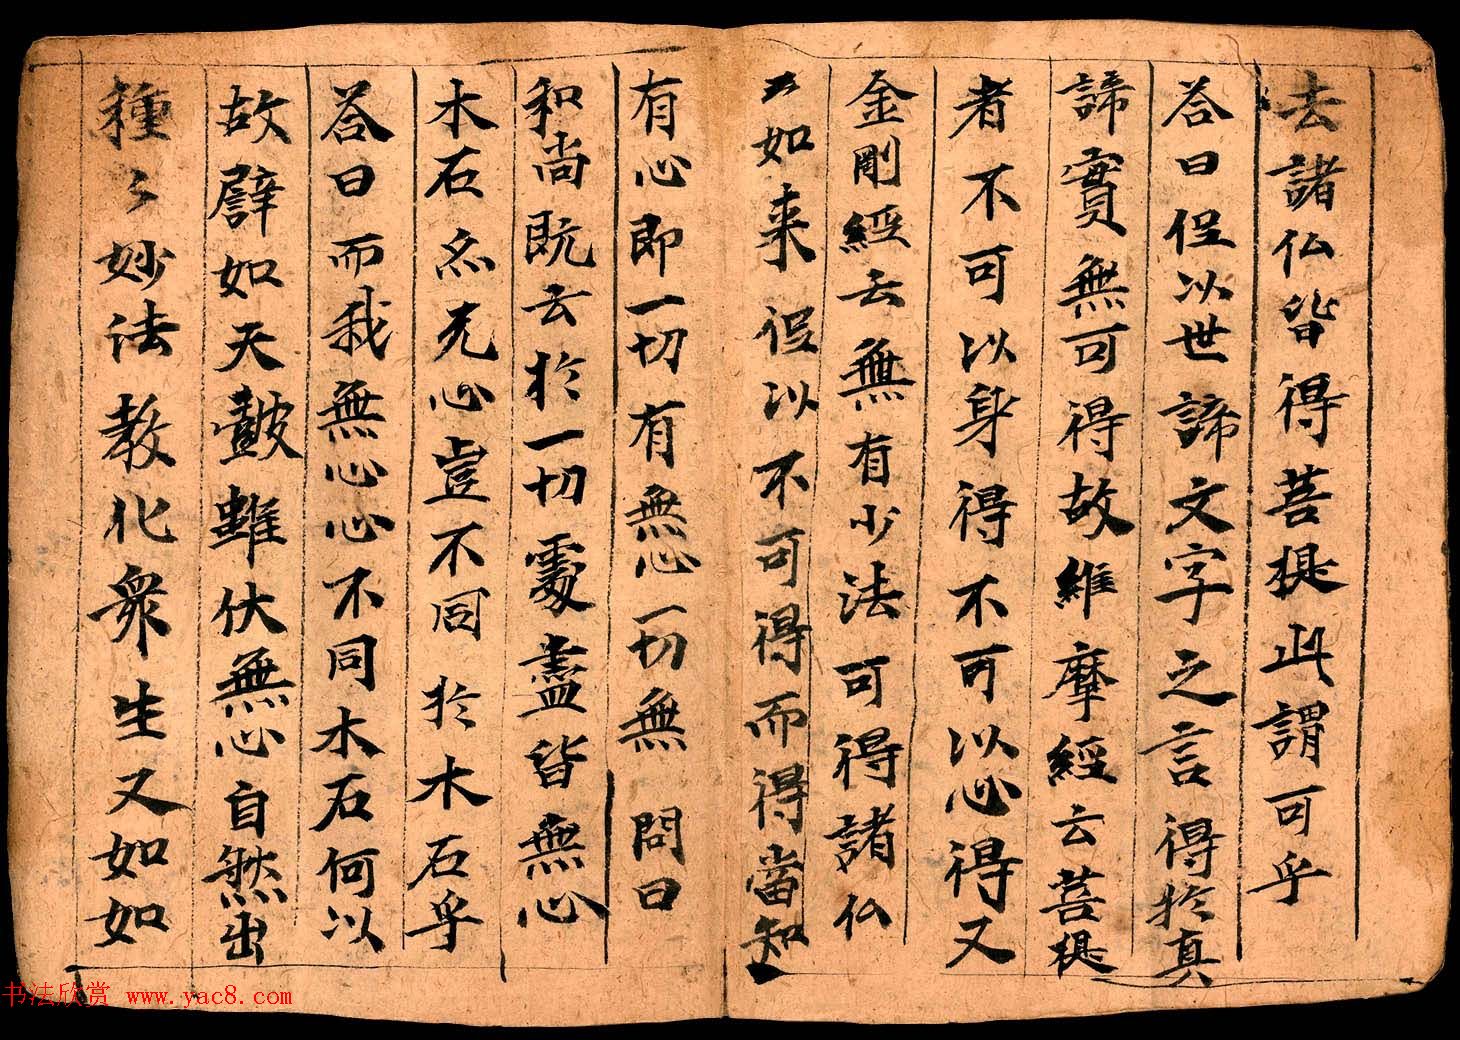 去諸仏皆得菩提此謂可乎
荅曰但以世諦文字之言得於真
諦實無可得故維摩經云菩提
者不可以身得不可以心得又
金剛經云無有少法可得諸仏
如来但以不可得而得當知
有心即一切有無心一切無 問曰
和尚既云於一切處盡皆無心
木石亦无心豈不同於木石乎
荅曰而我無心心不同木石何以
故譬如天鼓雖伏無心自然出
種〻妙法教化衆生又如如
书法欣赏 www.yac8.com